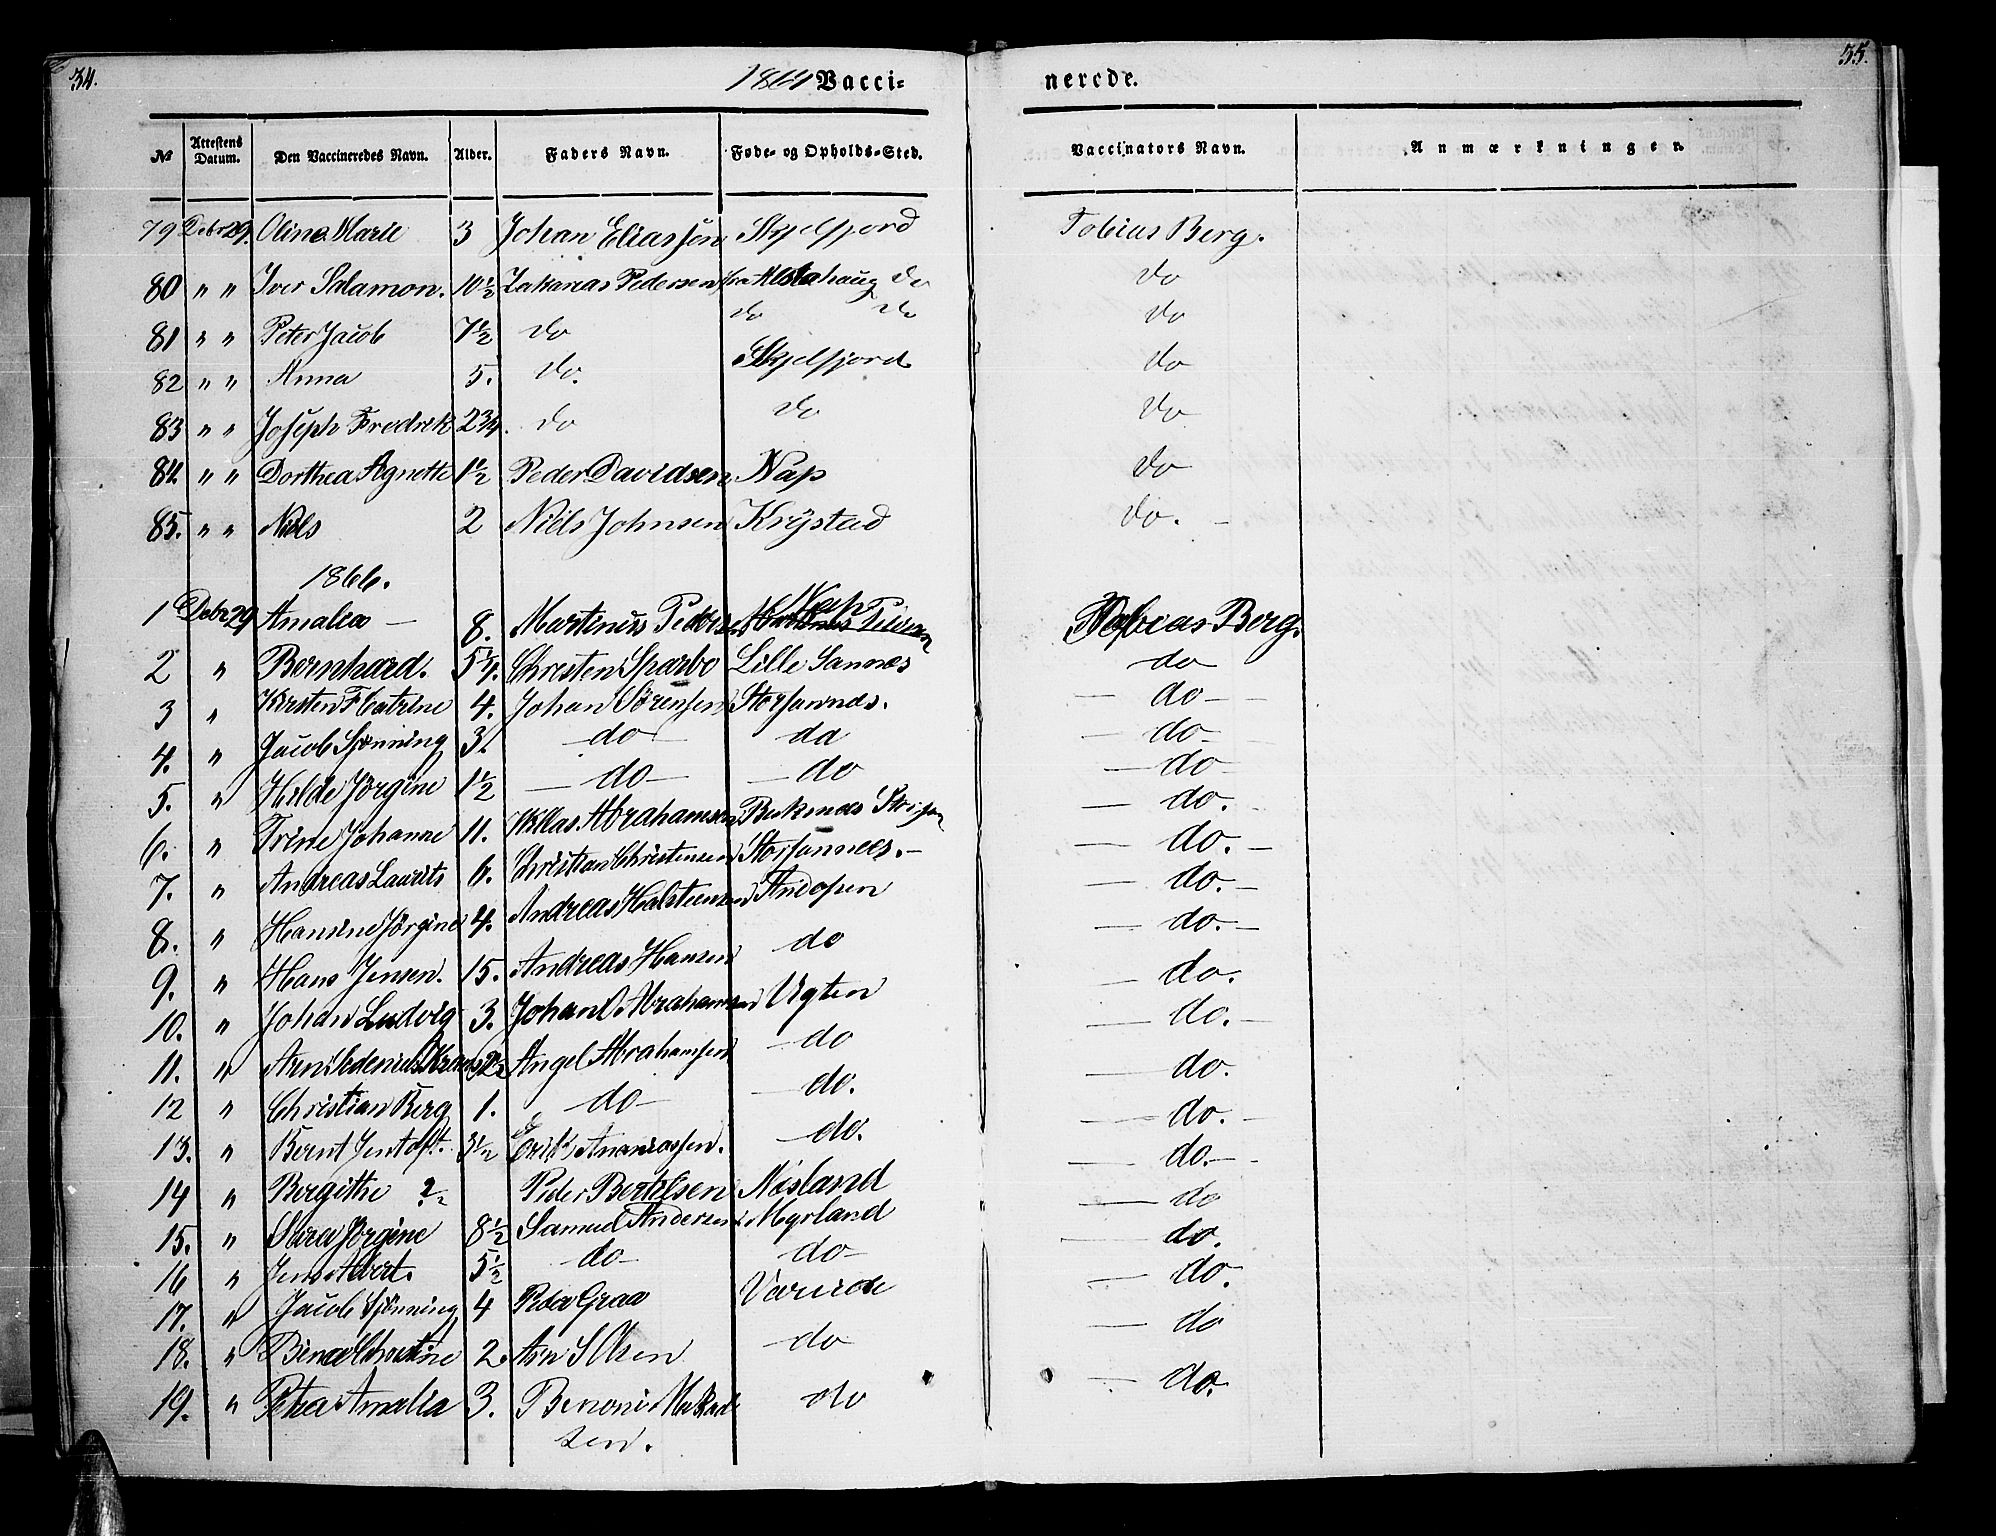 34.
1861 Vacci-
nerede.
35.
№ Attestens Datum. Den Vaccineredes Navn. Alder. Faders Navn. Føde- og Opholds-Sted. Vaccinators Navn. Anmærkninger.
79 Debr 29. Oline Marie 3 Johan Eliassen Skjelfjord Tobias Berg.
80 " " Iver Salamon. 10½ Zakarias Pedersen fra Alstahaug do do
81 " " Peter Jacob 7½ do do do do
82 " " Anna 5. do. Skjelfjord do
83 " " Joseph Fredrek 2¾. do do do
84. " " Dorthea Agnette 1½ Peder Davidsen Nap do
85. " " Niels 2 Niels Johnsen Krystad do.
1866.
1 Debr 29 Amalia 8. Martinus Peders Nap Tobias Berg.
2 " Bernhard. 5¼. Christen Sparbo Lille Sannes do
3 " Kirsten Catrine 4. Johan Sørensen Storsannes. do
4. " Jacob Sjønning 3. do da do
5. " Hilde Jørgine 1½ do do do
6. " Trine Johanne 11. Niklas Abrahamsen do.
7. " Andreas Laurits 6. Christian Christensen Storsannees. do.
8. " Hansine Jørgine 4. Andreas Halsteensen Andopen do.
9. " Hans Jensen. 15. Andreas Hansen do do.
10. " Johan Ludvig 3. Johan Abrahamsen Ugten do.
11. " Angel Abrahamsen do do.
12 " Christian Berg 1. do do. do.
13. " Bernt Jentoft. 3½ Erik Ananiassen. do. do.
14 " Bergithe 2 Peder Berthlsen Nesland do.
15. " Jørgine 8½ Samuel Andersen Myrland do
16 " Jens Albert. 5½ do do do.
17. " Jacob Sjønning 4 Peder Graa do.
18. " 2. Arn S Olsen do do
19. " Petra Amalia 3. Benoni do do.
sen.